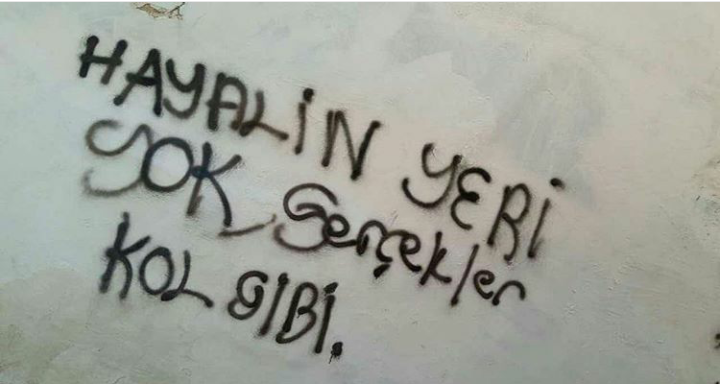 HAYALİN YERİ
YOK Gerçekler
KOL GİBİ.